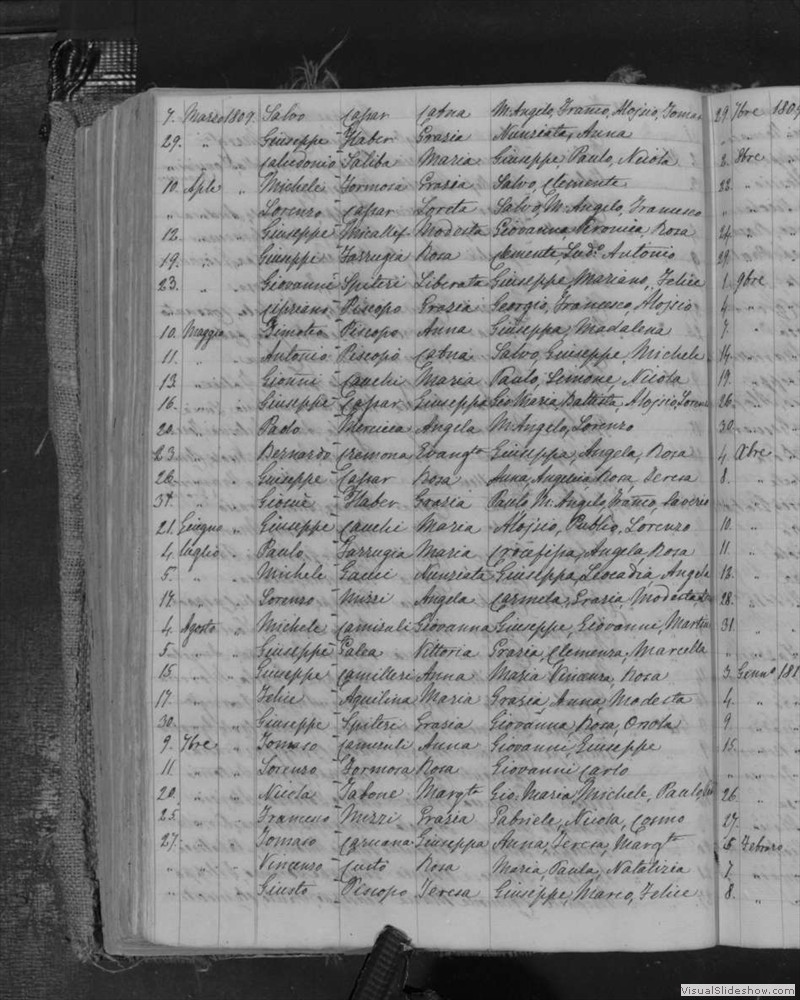 7. Marzo 1809. Salvo Caṗar Catna M. Angelo, Franco, Alojsio, Tomaso 29 7bre 1809
29. " " Giuseppe - Haber Grazia Nunziata, Anna "
" " " Calcedonio - Saliba Maria Giuseppe Paulo, Nicola 2. 8bre
10. Aple " Michele - Formosa Grazia Salvo, Clemente 22. "
" " " Lorenzo - Caspar Loreta Salvo, M. Angelo, Francesco " "
12. " " Giuseppe - Micallef Modesta Giovanna, Veronica, Rosa 24. "
19. " " Giuseppe - Farrugia Rosa Clemente, Antonio 29 "
23. " " Giovanni - Spiteri Liberata Giuseppe, Mariano, Felice 1. 9bre
" " " Cipriano - Piscopo Grazia Georgio, Francesco, Alojsio 4. "
10. Maggio " Timoteo - Piscopo Anna Giuseppa, Madalena 7. "
11. " " Antonio - Piscopo Catna Salvo, Giuseppe, Michele 14. "
13. " " Gionni - Cauchi Maria Paulo, Simone, Nicola 19. "
16. " " Giuseppe - Caspar Giuseppa Gio Maria, Battista, Alojsio, Lorenzo 26. "
20. " " Paolo - Mercieca Angela M. Angelo, Lorenzo 30. "
23 " " Bernardo - Cremona Evangta Giuseppa, Angela, Rosa 4. Xbre
26. " " Giuseppe - Caspar Rosa Anna, Angelica Rosa, Teresa 8. "
31. " " Giosuè - Haber Grazia Paulo, M. Angelo, Franco, Saverio " "
21. Giugno " Giuseppe - Cauchi Maria Alojsio, Publio, Lorenzo 10. "
4. Luglio " Paulo - Farrugia Maria Crocefissa, Angela Rosa 11. "
5. " " Michele - Gauci Nunziata Giuseppa, Leocadia, Angela 12. "
17. " " Lorenzo - Mizzi Angela Carmela, Grazia, Modesta 28. "
4. Agosto " Michele - Camisuli Giovanna Giuseppe, Giovanni, 31. "
5. " " Giuseppe - Galea Vittoria Grazia, Clemenza, Marcella " "
15 " " Giuseppe - Camilleri Anna Maria Vincenza, Rosa 3. Genno 181
17. " " Felice - Aquilina Maria Grazia, Anna, Modesta 4. "
30. " " Giuseppe - Spiteri Grazia Giovanna, Rosa, Orsola 9. "
9. 7bre " Tomaso - Camisuli Anna Giovanni, Giuseppe 15. "
11 " " Lorenzo - Formosa Rosa Giovanni Carlo " "
20. " " Nicola - Tabone Margta Gio. Maria, Michele, Paulo, 26. "
25. " " Francesco - Mizzi Grazia Gabriele, Nicola, Cosmo 27. "
27. " " Tomaso - Caruana Giuseppa Anna, Teresa, Margta 5 Febraro
" " " Vincenzo - Curto Rosa Maria, Paula, Natalizia 7. "
" " " Giusto - Piscopo Teresa Giuseppe, Marco, Felice 8. "
VisualSlideshow.com